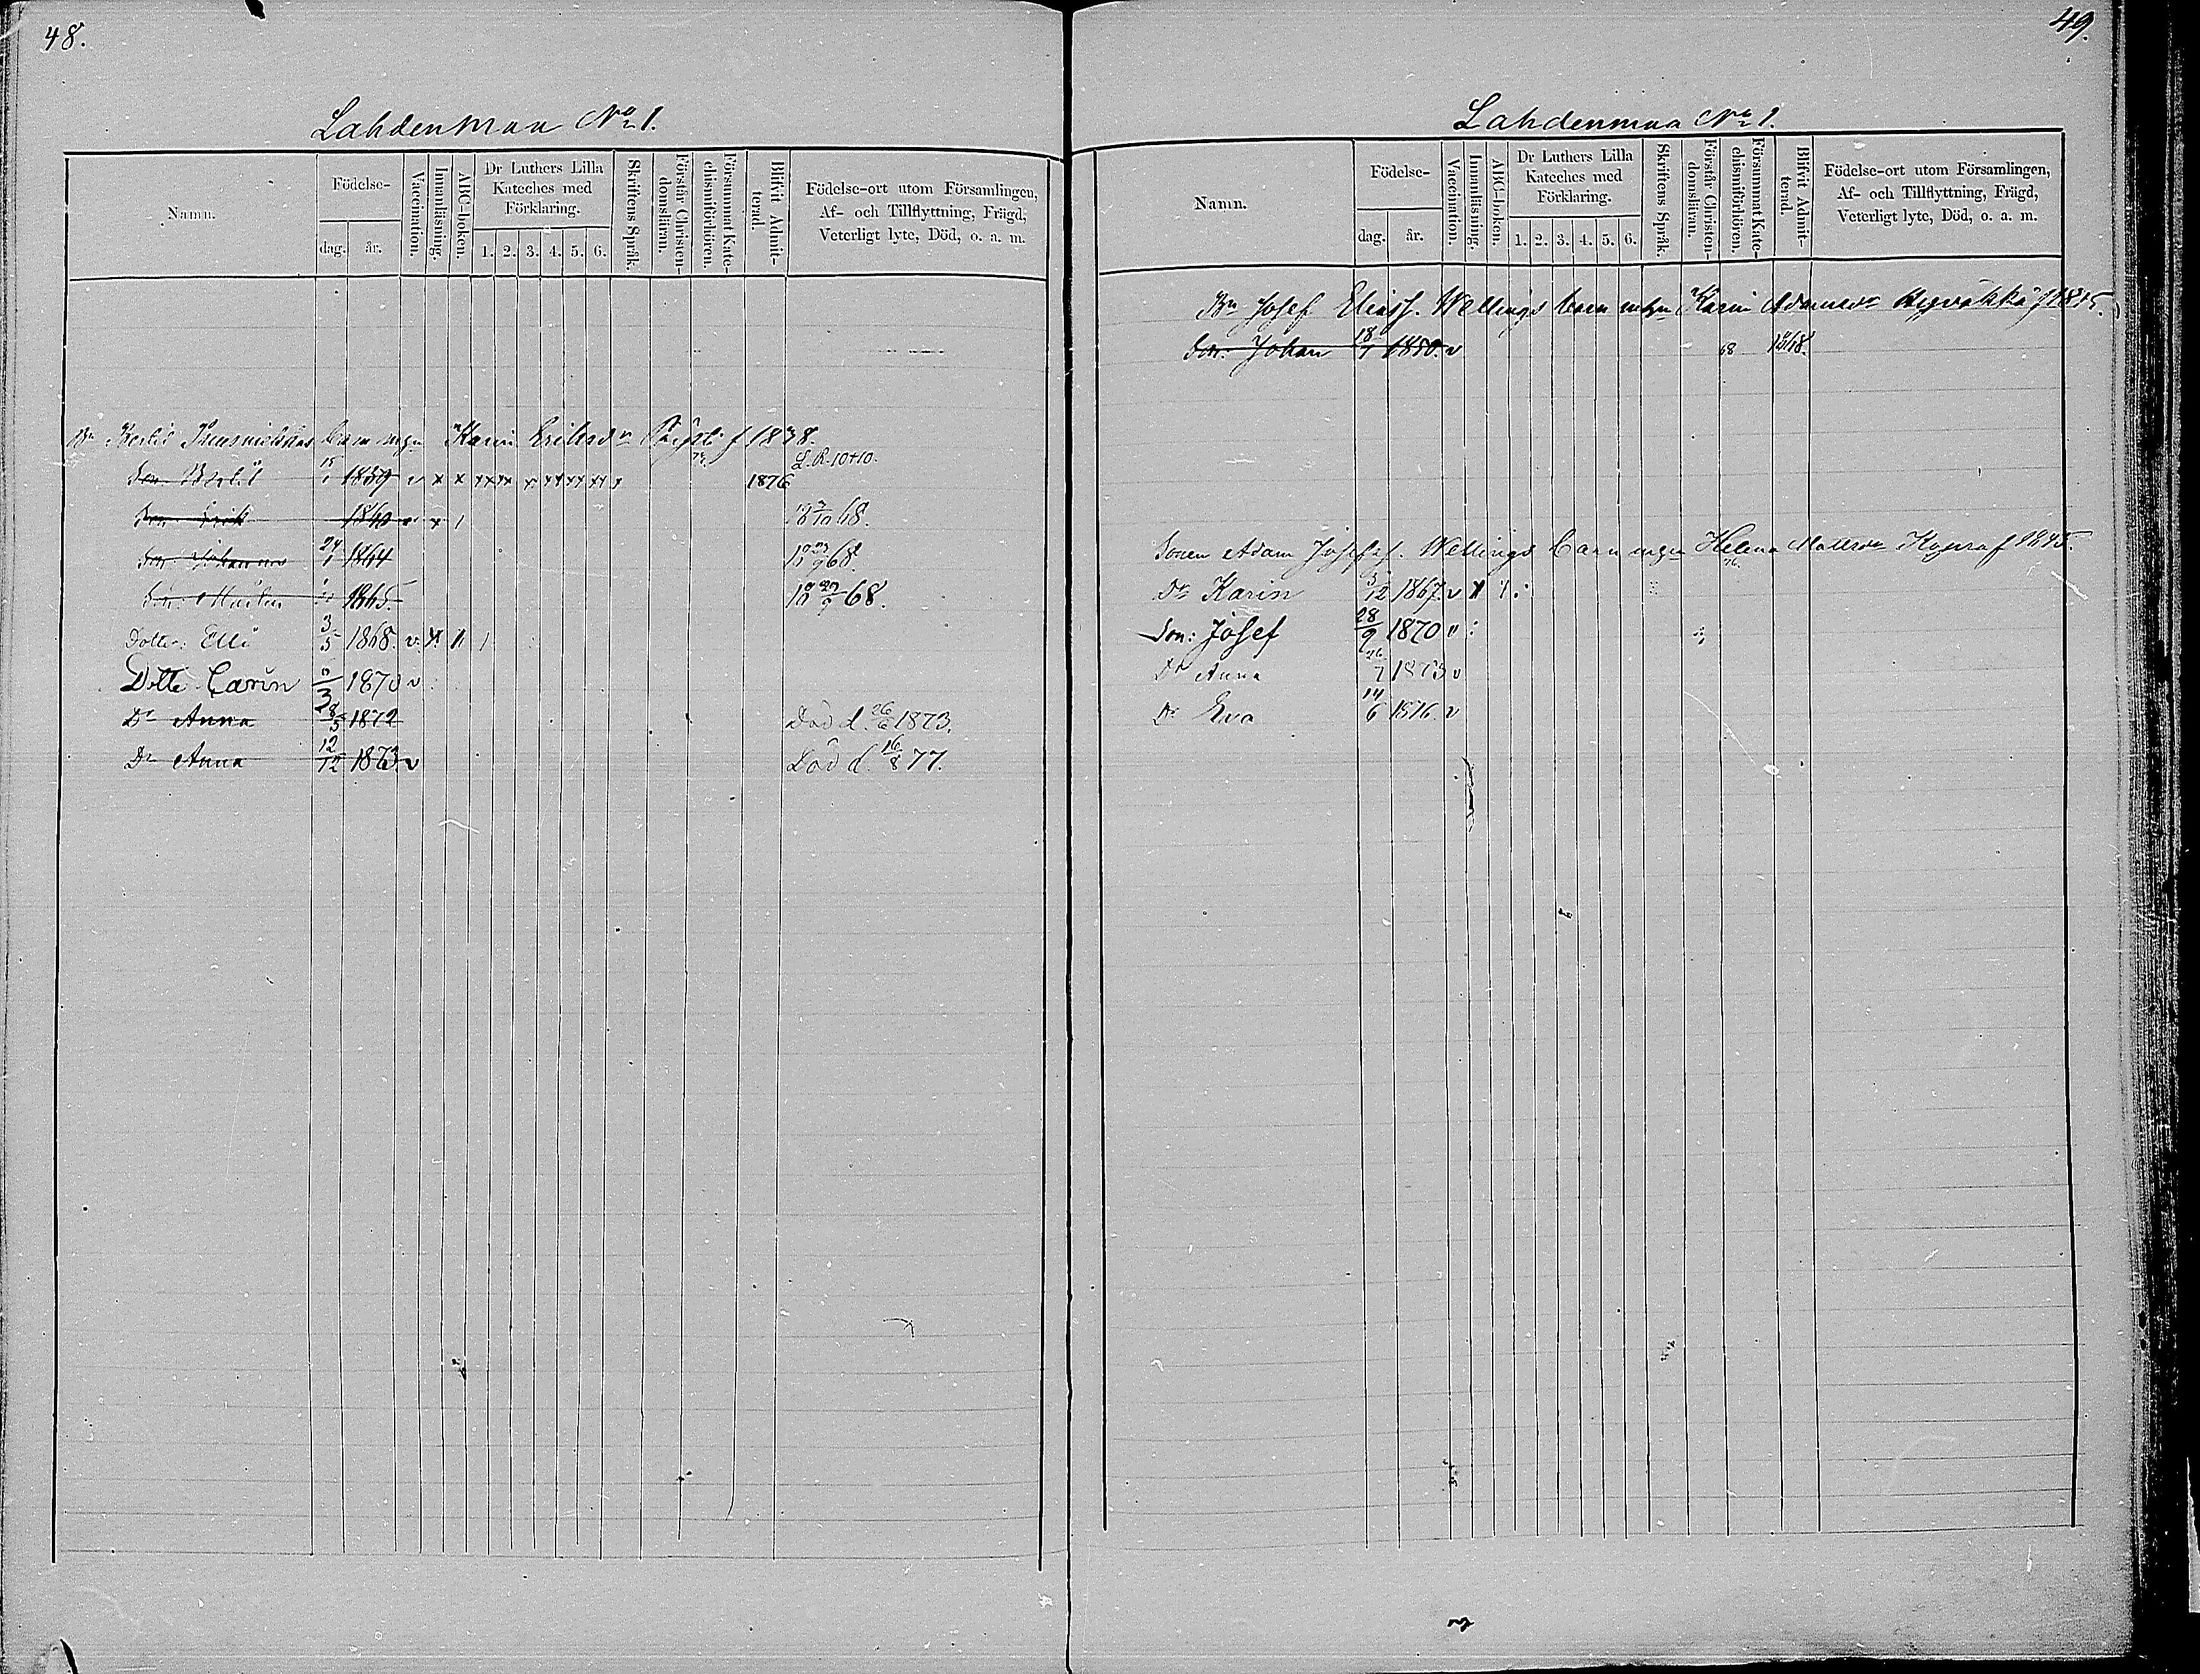 48.
Lahdenmaa No 1.
Namn.
Födelse-
dag.
år.
Vaccination.
Innanläsning.
ABC-boken.
Dr Luthers Lilla
Kateches med
Förklaring.
1. 2. 3. 4. 5. 6.
Skriftens Språk.
Förstår Christen-
domsläran.
Försummat Kate-
chismiförhören.
Blifvit Admit-
terad.
Födelse-ort utom Församlingen,
Af- och Tillflyttning, Frägd,
Veterligt lyte, Död, o. a. m.
Bn Bertil barn m Karin Eriksdr f 1838.
L. R. 10+10.
Son Bertil 15 1859 v x x xx xx x xx xx xx x 1876
Son Erik 1860 v x 1 68.
Son Johannes 24 1864 68.
Son Martin 1865 68.
Dotter: Elli 3/5 1868. v.
Dotte Carin /3 1870 v
Dr Anna 28/5 1872 Död d. 26/6 1873.
Dr Anna 12/12 1873. v Död d. 16/8 77.
49.
Lahdenmaa No 1.
Namn.
Födelse-
dag.
år.
Vaccination.
Innanläsning.
ABC-boken.
Dr Luthers Lilla
Kateches med
Förklaring.
1. 2. 3. 4. 5. 6.
Skriftens Språk.
Förstår Christen-
domsläran.
Försummat Kate-
chismiförhören.
Blifvit Admit-
terad.
Födelse-ort utom Församlingen,
Af- och Tillflyttning, Frägd,
Veterligt lyte, Död, o. a. m.
Bn Josef Eliass. Wellings barn Karin Adamsdr
Son: Johan 18/7 1850. v 68
Sonen Adam Josefss. Wellings barn Helena Mattsdr f 1845.
Dr Karin 3/12 1867. v x
Son: Josef 28/9 1870
Dr Anna 26/7 1873 v
Dr Eva 14/6 1876. v